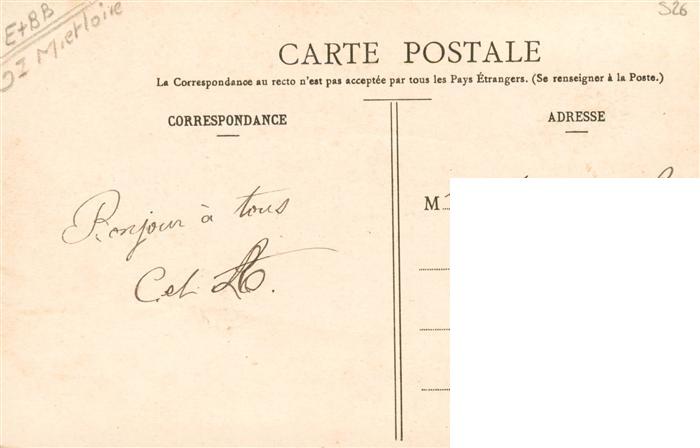 E+BB
S26
CARTE POSTALE
La Correspondance au recto n'est pas acceptée par tous les Pays Étrangers. (Se renseigner à la Poste.)
CORRESPONDANCE
ADRESSE
M
Bonjour à tous
C. et